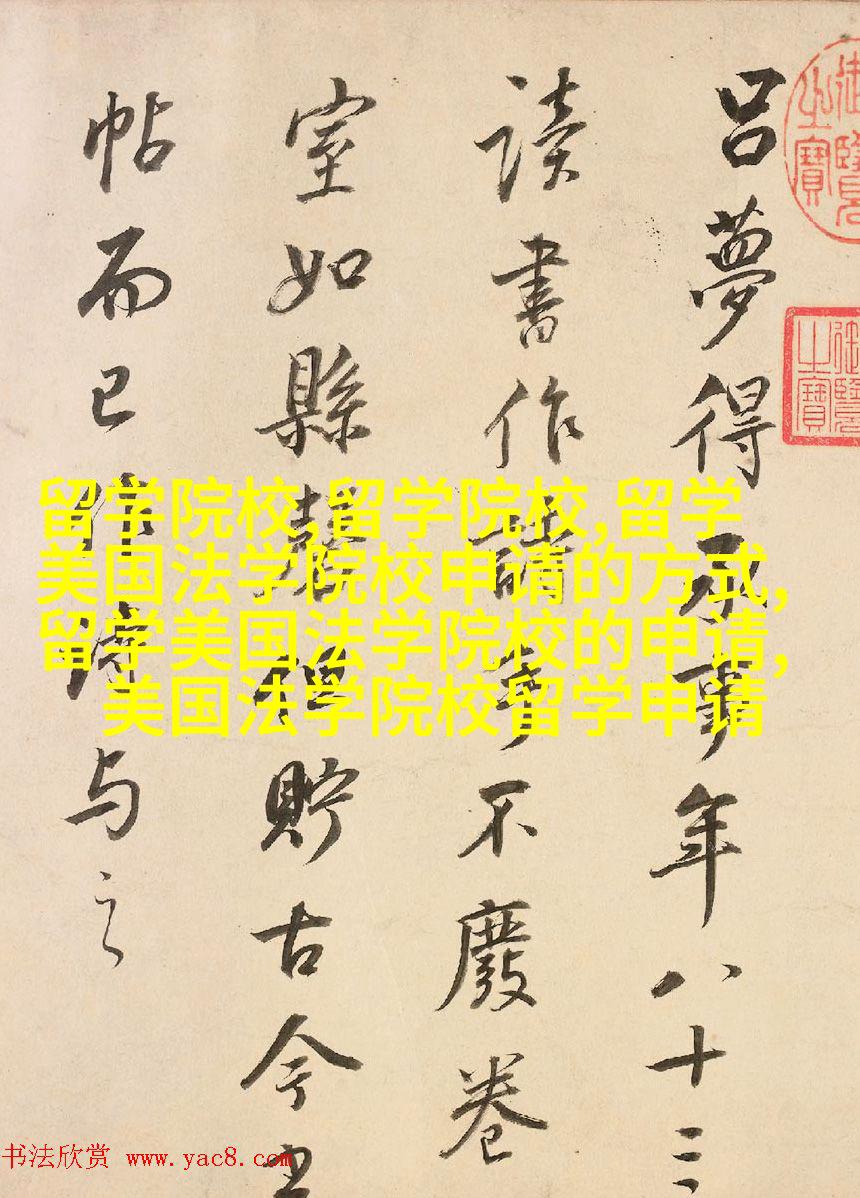 御覽之寶
御覽之寶
吕夢得承事年八十三
讀書作不廢卷
室如縣磬但貯古今
帖而已作詩与之
留学院校,留学院校,留学
美国法学院校申请的方式,
留学美国法学院校的申请,
美国法学院校留学申请
书法欣赏 www.yac8.com